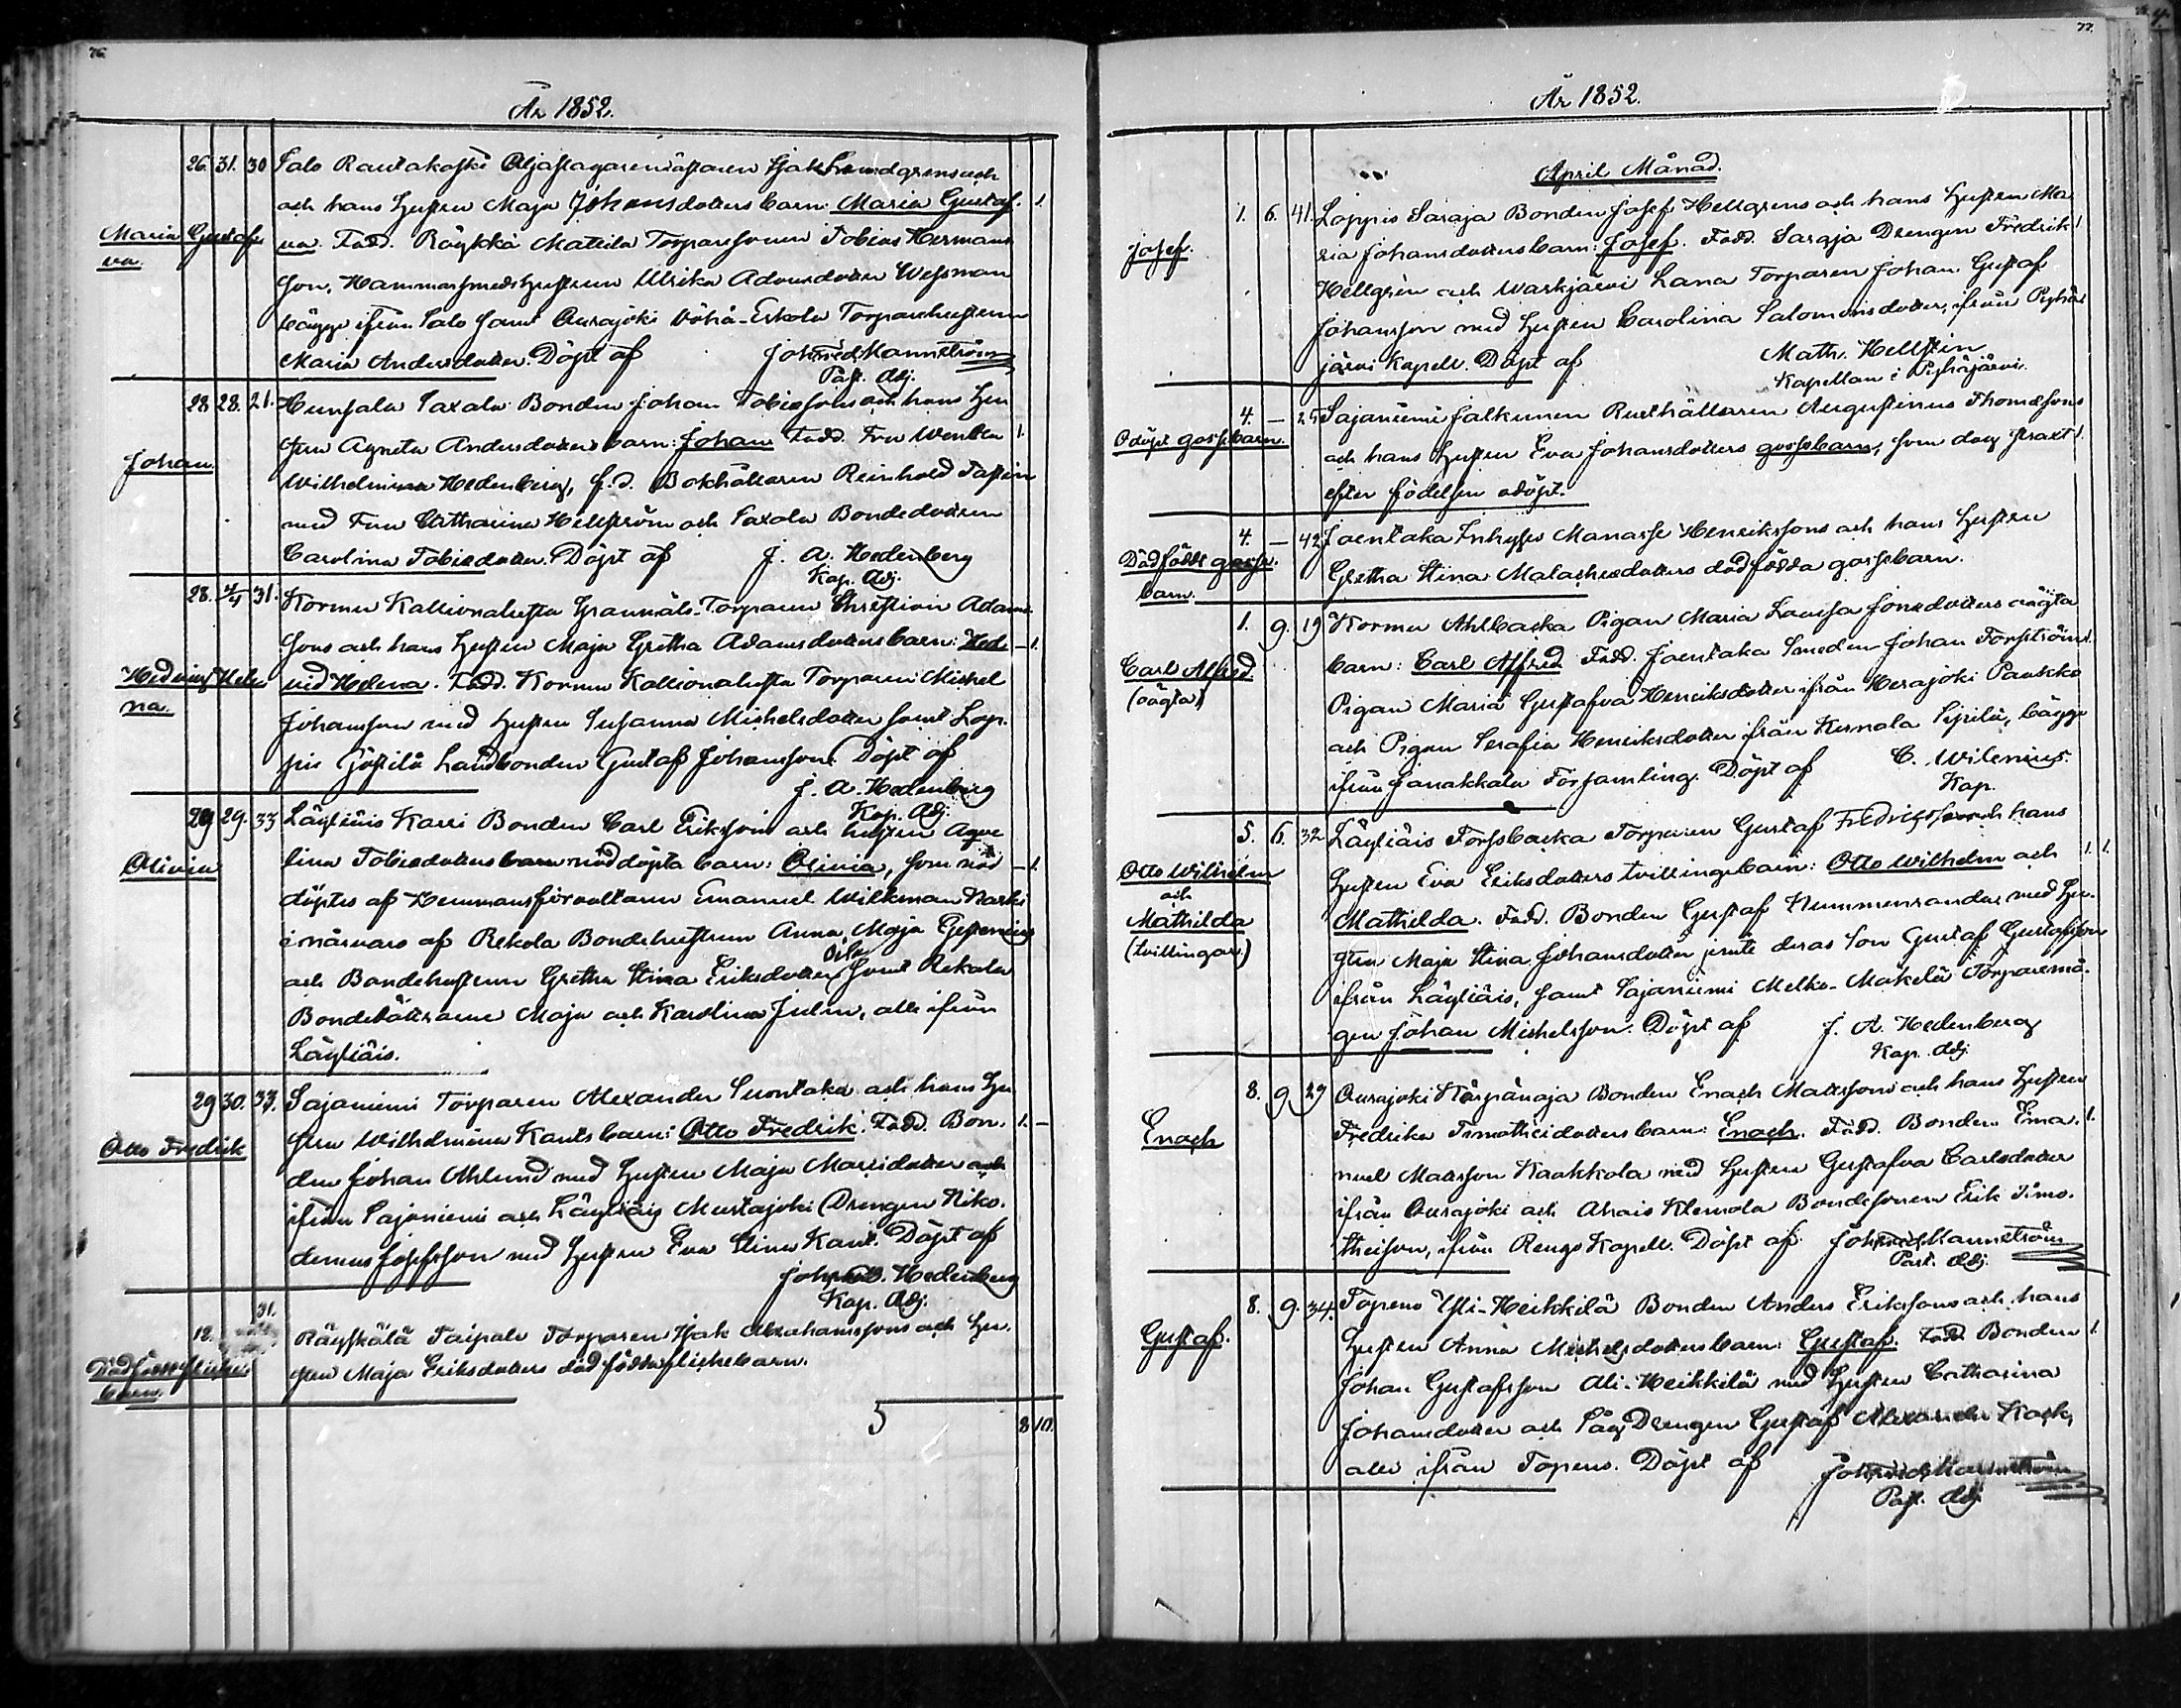 76.
År 1852.
26. 31. 30 Salo Rautakoski Isak Lindgrens och
och hans Hustru Maja Johansdotters barn: Maria Gustaf- 1.
Maria Gustaf-
va.
va. Fadd. Räykkä Mattila Torparesonen Tobias Hermans
son, Hammarsmeds Hustrun Ulrika Wessman
bägge ifrån Salo samt Ourajoki Vähä-Eskola Torparehustrun
Maria Andersdotter. Döpt af Joh. Fred. Mannström
Past. Adj.
28 28. 21. Hunsala Saxala Bonden Johan Tobiassons och hans Hu
stru Agneta Andersdotters barn: Johan Fadd. Fru 1.
Johan.
Wilhelmina Hedenberg, f.d. Bokhållaren Reinhold
med Fru Catharina Hellström och Saxala Bondedottren
Carolina Tobiedotter. Döpt af J. A. Hedenberg
Kap. Adj.
28. 4/4 31. Kormu Kallionalusta Torparen Christian Adams-
sons och hans Hustru Maja Gretha Adamsdotters barn: Hed- – 1.
Hedvig Hele
na.
vid Helena. Fadd. Kormu Kallionalusta Torparen Michel
Johansson med Hustru Susanna Michelsdotter samt Lop-
pis Landbonden Gustaf Johansson. Döpt af
J. A. Hedenberg
Kap. Adj.
29 29. 33 Läyliäis Karri Bonden Carl Erikssons och hustru Aqve
Olivia
lina Tobiedotters barn nöddöpta barn: Olivia, som nöd – 1.
döptes af Hemmansförvaltaren Emanuel Wilkman
i närvaro af Rekola Bondehustrun Anna Maja
och Bondehustrun Gretha Stina Eriksdotter samt Rekola
Bondedöttrarne Maja och Karolina Julin, alle ifrån
Läyliäis.
29 30. 33. Sajaniemi Torparen Alexander Suontaka och hans Hu
stru Wilhelmina Kants barn: Otto Fredrik. Fadd. Bon- 1. –
Otto Fredrik
den Johan Ahlund med Hustru Maja dotter och
ifrån Sajaniemi och Läyliäis Mustajoki Drengen Niko-
demus Josefsson med Hustru Eva Stina Kant. Döpt af
Joh. Hedenberg
Kap. Adj.
31.
12. Räyskälä Taipale Torparen Isak Abrahamssons och Hu-
Dödfödt flicke-
barn.
stru Maja Eriksdotters dödfödda flickebarn.
5 8 10.
77.
År 1852.
April Månad.
1. 6. 41. Loppis Saraja Bonden Josef Hellgrens och hans Hustru Ma
Josef.
ria Johansdotters barn: Josef. Fadd. Saraja Drengen Fredrik 1
Hellgrén och Warkjärvi Lana Torparen Johan Gustaf
Johansson med Hustru Carolina Salomonsdotter, ifrån Pyhä
järvi Kapell. Döpt af Math. Hellstén
Kapellan i Pyhäjärvi.
4. – 25 Sajaniemi Jalkunen Rusthållaren Augustinus Thomæsons
Odöpt gossebarn.
och hans Hustru Eva Johansdotters gossebarn, som dog straxt 1.
efter födelsen odöpt.
4. – 42 Joentaka Inhyses Manasse Henrikssons och hans Hustru
Dödfödt gosse-
barn.
Gretha Stina dotters dödfödda gossebarn.
1. 9. 19 Kormu Ahlbacka Pigan Maria Lovisa Jonædotters oägta
Carl Alfred.
(oägta)
barn: Carl Alfred Fadd. Joentaka Smeden Johan Forsström 1.
Pigan Maria Gustafva Henriksdotter ifrån Herajoki Paakko
och Pigan Serafia Henriksdotter ifrån Hernala Sipilä, bägge
ifrån Janakkala Församling. Döpt af C. Wilenius.
Kap.
5. 6. 32 Läyliäis Forssbacka Torparen Gustaf Fredrikssons och hans
Otto Wilhelm
och
Mathilda
(tvillingar)
Hustru Eva Eriksdotters tvillingebarn: Otto Wilhelm och 1. 1.
Mathilda. Fadd. Bonden Gustaf Nummenrandas med Hu-
stru Maja Stina Johansdotter jemte deras Son Gustaf Gustafsson
ifrån Läyliäis, samt Sajaniemi Melko-Makelä Torparemå-
gen Johan Michelsson. Döpt af J. A. Hedenberg
Kap. Adj.
8. 9 29 Ourajoki Kärpänoja Bonden Enoch Matssons och hans Hustru
Enoch
Fredrika Timotheidotters barn: Enoch. Fadd. Bonden Ema- 1.
nuel Matsson Kaakkola med Hustru Gustafva Carlsdotter
ifrån Ourajoki och Ahois Klemola Bondesonen Erik Timo-
theison, ifrån Rengo Kapell. Döpt af Joh. Fred. Mannström
Past. Adj.
8. 9. 34. Topeno Yli-Heikkilä Bonden Anders Erikssons och hans
Gustaf.
Hustru Anna Michelsdotters barn: Gustaf. Fadd. Bonden 1.
Johan Gustafsson Ali-Heikkilä med Hustru Catharina
Johansdotter och Såg Drengen Gustaf Alexander Kock,
alla ifrån Topeno. Döpt af Joh. Fred. Mannström
Past. Adj.